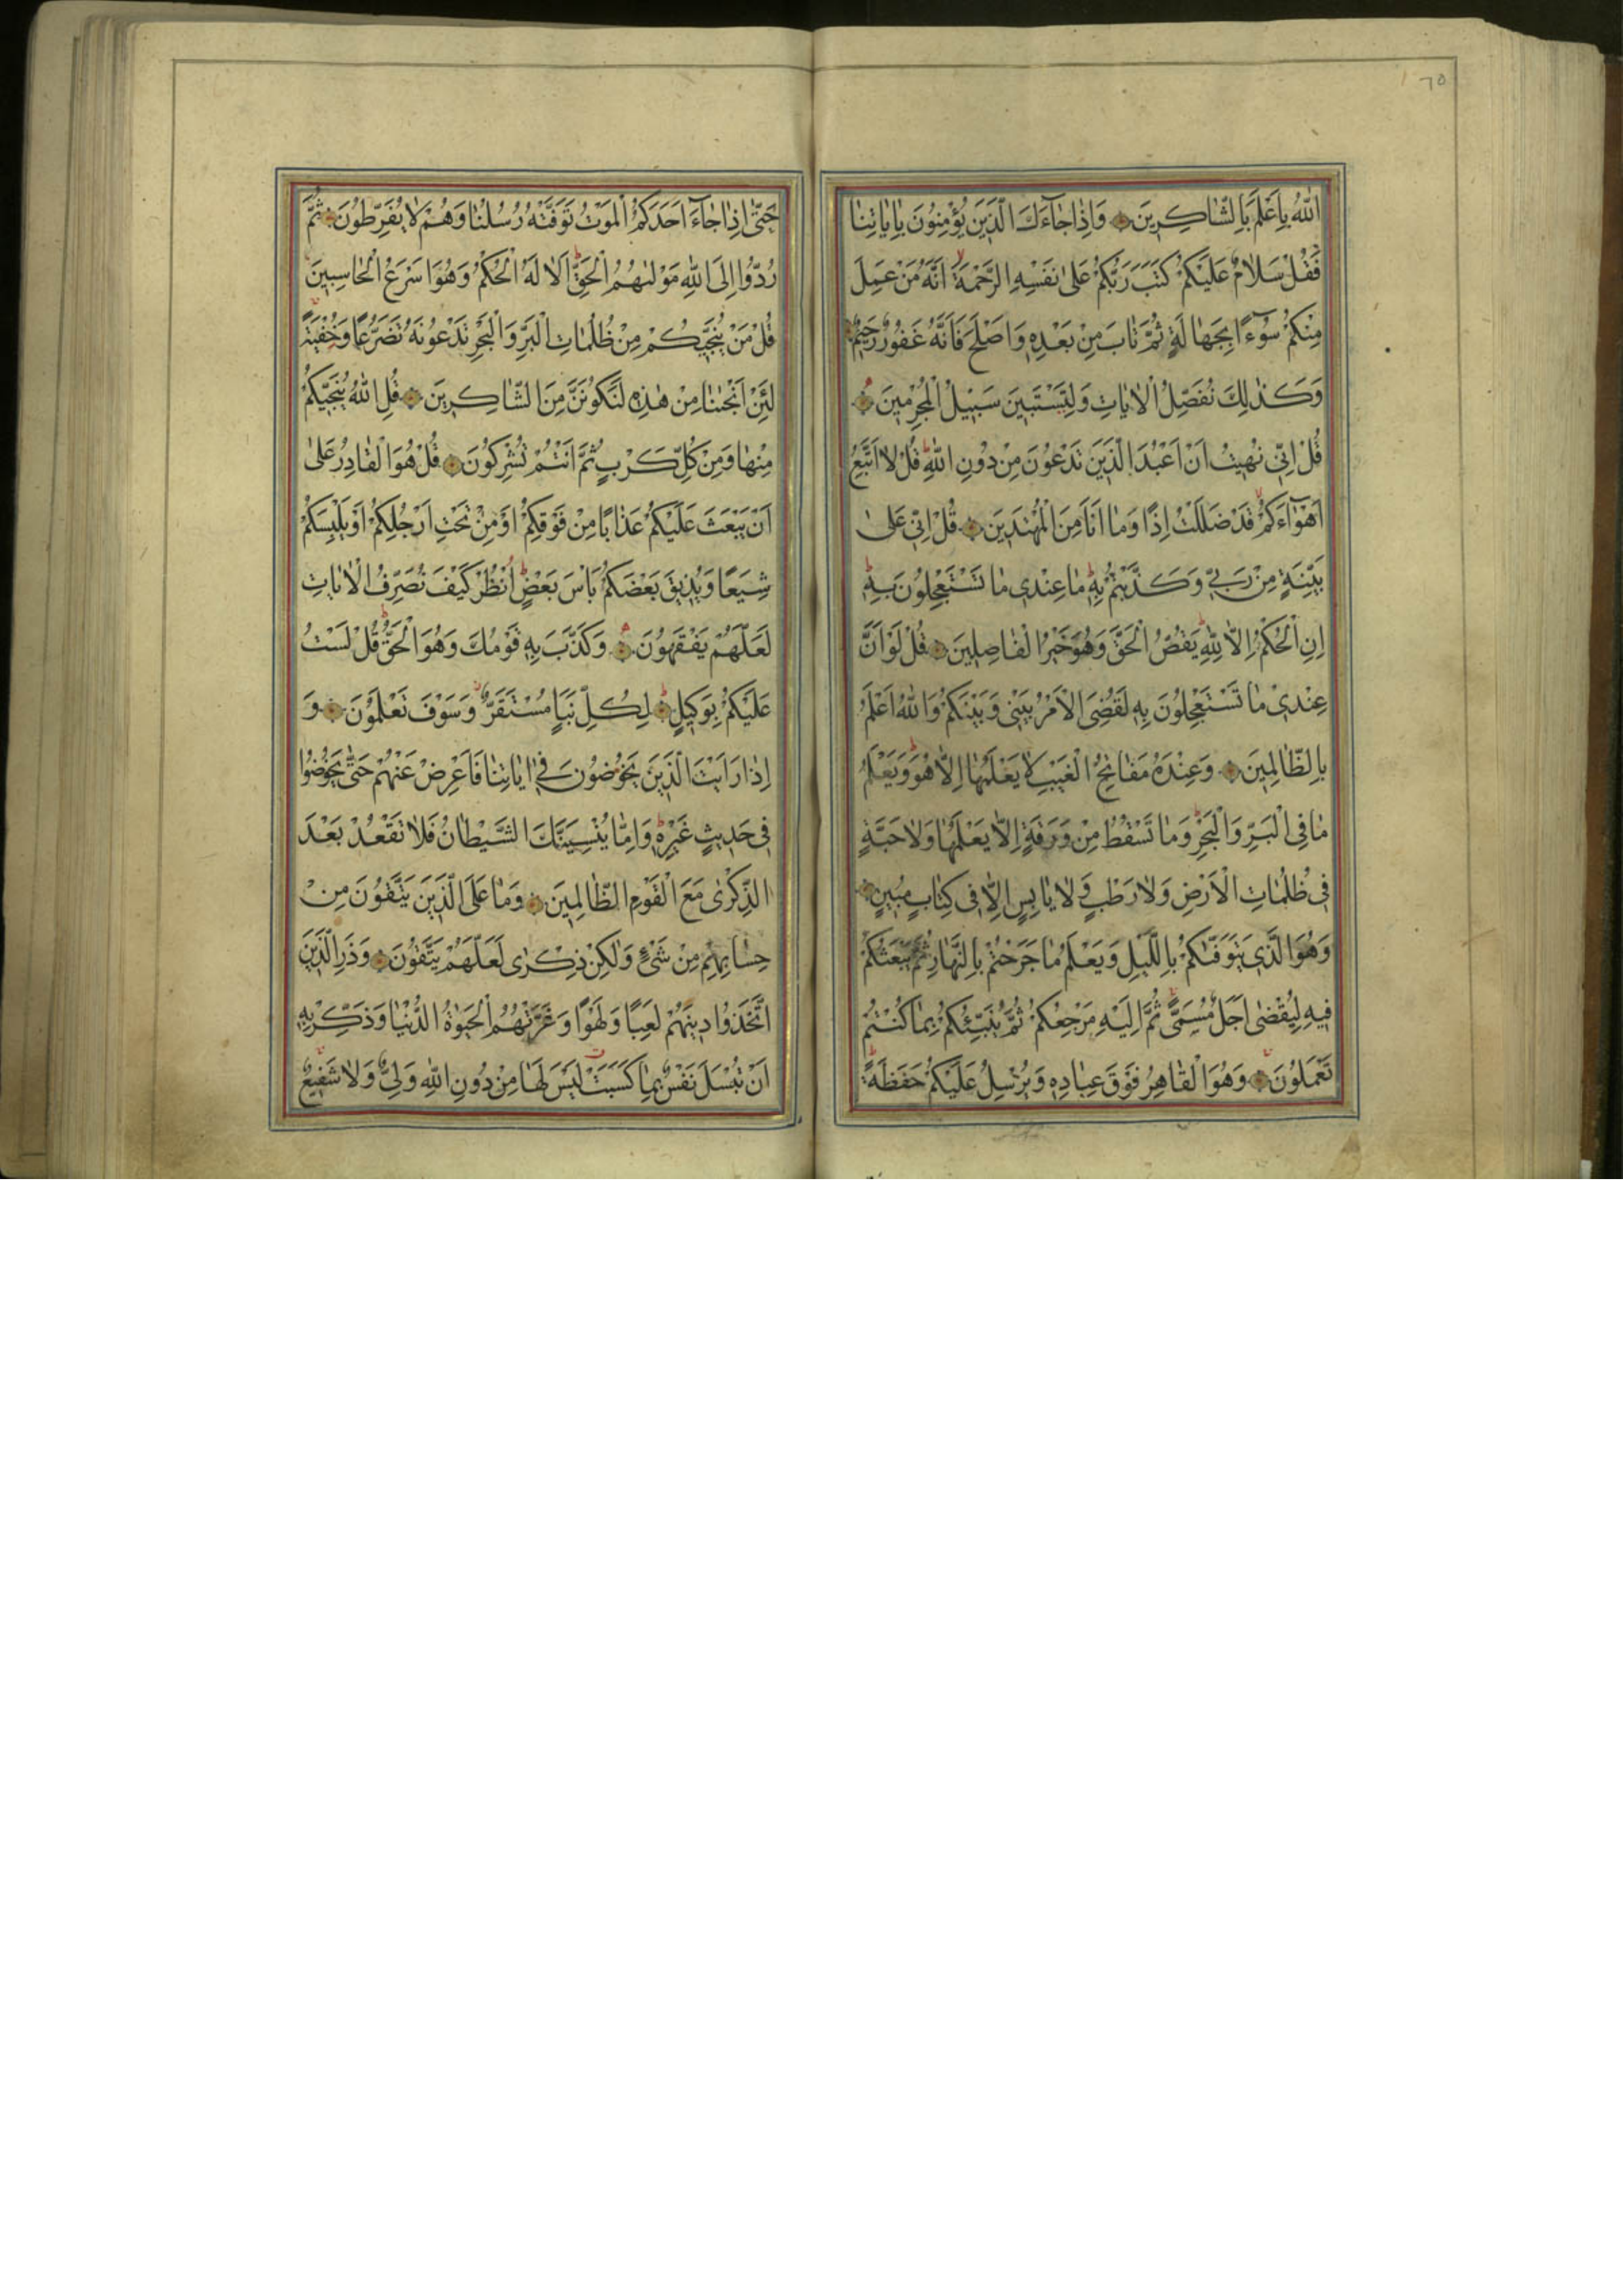 ٦٥
اللّٰهُ بِاَعْلَمَ بِالشَّاكِرِينَ وَاِذَا جَآءَكَ الَّذِينَ يُؤْمِنُونَ بِاٰيَاتِنَا
فَقُلْ سَلَامٌ عَلَيْكُمْ كَتَبَ رَبُّكُمْ عَلٰى نَفْسِهِ الرَّحْمَةَ اَنَّهُ مَنْ عَمِلَ
مِنْكُمْ سُوٓءًا بِجَهَالَةٍ ثُمَّ تَابَ مِنْ بَعْدِهِ وَاَصْلَحَ فَاَنَّهُ غَفُورٌ رَحِيمٌ
وَكَذٰلِكَ نُفَصِّلُ الْاٰيَاتِ وَلِتَسْتَبِينَ سَبِيلُ الْمُجْرِمِينَ
قُلْ اِنِّي نُهِيتُ اَنْ اَعْبُدَ الَّذِينَ تَدْعُونَ مِنْ دُونِ اللّٰهِ قُلْ لَا اَتَّبِعُ
اَهْوَآءَكُمْ قَدْ ضَلَلْتُ اِذًا وَمَا اَنَا مِنَ الْمُهْتَدِينَ قُلْ اِنِّي عَلٰى
بَيِّنَةٍ مِنْ رَبِّي وَكَذَّبْتُمْ بِهِ مَا عِنْدِي مَا تَسْتَعْجِلُونَ بِهِ
اِنِ الْحُكْمُ اِلَّا لِلّٰهِ يَقُصُّ الْحَقَّ وَهُوَ خَيْرُ الْفَاصِلِينَ قُلْ لَوْ اَنَّ
عِنْدِي مَا تَسْتَعْجِلُونَ بِهِ لَقُضِيَ الْاَمْرُ بَيْنِي وَبَيْنَكُمْ وَاللّٰهُ اَعْلَمُ
بِالظَّالِمِينَ وَعِنْدَهُ مَفَاتِحُ الْغَيْبِ لَا يَعْلَمُهَا اِلَّا هُوَ وَيَعْلَمُ
مَا فِي الْبَرِّ وَالْبَحْرِ وَمَا تَسْقُطُ مِنْ وَرَقَةٍ اِلَّا يَعْلَمُهَا وَلَا حَبَّةٍ
فِي ظُلُمَاتِ الْاَرْضِ وَلَا رَطْبٍ وَلَا يَابِسٍ اِلَّا فِي كِتَابٍ مُبِينٍ
وَهُوَ الَّذِي يَتَوَفّٰيكُمْ بِاللَّيْلِ وَيَعْلَمُ مَا جَرَحْتُمْ بِالنَّهَارِ ثُمَّ يَبْعَثُكُمْ
فِيهِ لِيُقْضٰى اَجَلٌ مُسَمًّى ثُمَّ اِلَيْهِ مَرْجِعُكُمْ ثُمَّ يُنَبِّئُكُمْ بِمَا كُنْتُمْ
تَعْمَلُونَ وَهُوَ الْقَاهِرُ فَوْقَ عِبَادِهِ وَيُرْسِلُ عَلَيْكُمْ حَفَظَةً
حَتّٰى اِذَا جَآءَ اَحَدَكُمُ الْمَوْتُ تَوَفَّتْهُ رُسُلُنَا وَهُمْ لَا يُفَرِّطُونَ ثُمَّ
رُدُّوا اِلَى اللّٰهِ مَوْلٰيهُمُ الْحَقِّ اَلَا لَهُ الْحُكْمُ وَهُوَ اَسْرَعُ الْحَاسِبِينَ
قُلْ مَنْ يُنَجِّيكُمْ مِنْ ظُلُمَاتِ الْبَرِّ وَالْبَحْرِ تَدْعُونَهُ تَضَرُّعًا وَخُفْيَةً
لَئِنْ اَنْجَيْتَنَا مِنْ هٰذِهِ لَنَكُونَنَّ مِنَ الشَّاكِرِينَ قُلِ اللّٰهُ يُنَجِّيكُمْ
مِنْهَا وَمِنْ كُلِّ كَرْبٍ ثُمَّ اَنْتُمْ تُشْرِكُونَ قُلْ هُوَ الْقَادِرُ عَلٰى
اَنْ يَبْعَثَ عَلَيْكُمْ عَذَابًا مِنْ فَوْقِكُمْ اَوْ مِنْ تَحْتِ اَرْجُلِكُمْ اَوْ يَلْبِسَكُمْ
شِيَعًا وَيُذِيقَ بَعْضَكُمْ بَاْسَ بَعْضٍ اُنْظُرْ كَيْفَ نُصَرِّفُ الْاٰيَاتِ
لَعَلَّهُمْ يَفْقَهُونَ وَكَذَّبَ بِهِ قَوْمُكَ وَهُوَ الْحَقُّ قُلْ لَسْتُ
عَلَيْكُمْ بِوَكِيلٍ لِكُلِّ نَبَاٍ مُسْتَقَرٌّ وَسَوْفَ تَعْلَمُونَ وَ
اِذَا رَاَيْتَ الَّذِينَ يَخُوضُونَ فِي اٰيَاتِنَا فَاَعْرِضْ عَنْهُمْ حَتّٰى يَخُوضُوا
فِي حَدِيثٍ غَيْرِهِ وَاِمَّا يُنْسِيَنَّكَ الشَّيْطَانُ فَلَا تَقْعُدْ بَعْدَ
الذِّكْرٰى مَعَ الْقَوْمِ الظَّالِمِينَ وَمَا عَلَى الَّذِينَ يَتَّقُونَ مِنْ
حِسَابِهِمْ مِنْ شَيْءٍ وَلٰكِنْ ذِكْرٰى لَعَلَّهُمْ يَتَّقُونَ وَذَرِ الَّذِينَ
اتَّخَذُوا دِينَهُمْ لَعِبًا وَلَهْوًا وَغَرَّتْهُمُ الْحَيٰوةُ الدُّنْيَا وَذَكِّرْ بِهِ
اَنْ تُبْسَلَ نَفْسٌ بِمَا كَسَبَتْ لَيْسَ لَهَا مِنْ دُونِ اللّٰهِ وَلِيٌّ وَلَا شَفِيعٌ